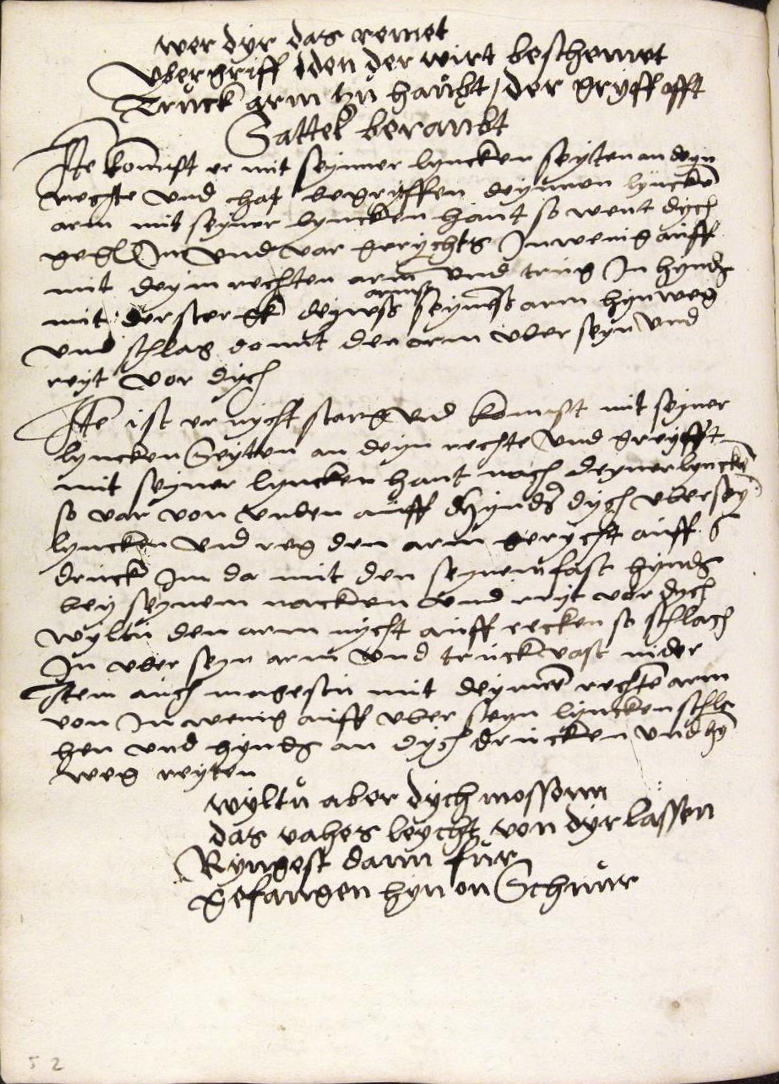 wer dyr das remet
Vbergriff dden der wirt beschemet
Truck arm tzu haubt / der gryff offt
Sattel beraubt
Ite kompst er mit seyner lyncken seyten an deyn
rechte vnd hat begriffen deynnen lyncke
arm mit seyner lyncken hant so went dych
gegen Im vnd var gerychts Inwenig auff
mit deym rechten arm vnd trug In hynds
mit der sterck deyness arms seyness arm hynweg
vnd schlag domit den arm vber seyn vnd
reyt vor dych
Ite ist er nycht starg vnd kompst mit seyner
lyncken Seytten an deyn rechte vnd greyfft
mit seyner lyncken hant nach deyner lyncken
so var von vnden auff hynds dych vber sey
lyncken vnd reg den arm gerycht auff
druck Im da mit den seynen fast hynds
bey seynem nacken vnd reyt vor dych
wyltu den arm nycht auff recken so schlach
In vber seyn arm vnd truck vast nider
Item auch magestu mit deyme rechte arm
von Inwenig auff vber seyn lyncken schla
hen vnd hynds an dych drucken vnd hyn
weg reyten
wyltu aber dych mossenn
das vahes leycht von dyr lassen
Ryngest dann fur
gefangen hyn on Schnur
52